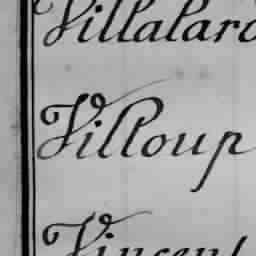 Villalard
Villoup
Vincent